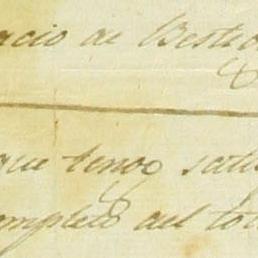 acio de Bestia
que tengo satis
completo del tot